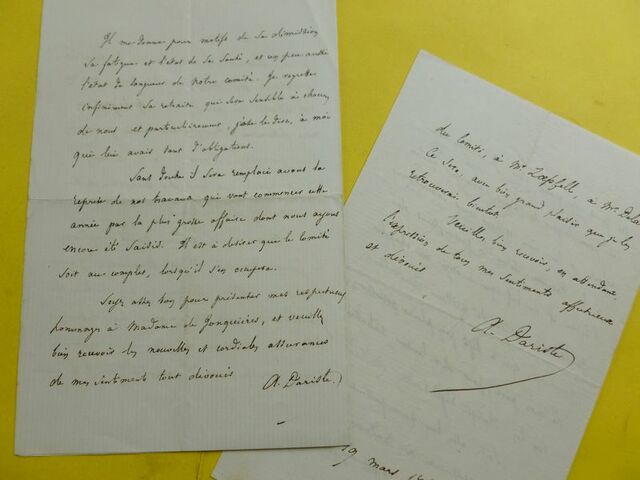 Il me donne pour motifs de sa démission
sa fatigue et l'état de sa santé, et un peu aussi
l'état de langueur de notre comité. Je regrette
infiniment sa retraite qui sera sensible à chacun
de nous et particulièrement, j'ose le dire, à moi
qui lui avais tant d'obligations.
Sans doute il sera remplacé avant la
reprise de nos travaux qui vont commencer cette
année par la plus grosse affaire dont nous ayons
encore été saisis. Il est à désirer que le comité
soit au complet, lorsqu'il s'en occupera.
Soyez assez bon pour présenter mes respectueux
hommages à Madame de Jonquières, et veuillez
bien recevoir les nouvelles et cordiales assurances
de mes sentiments tout dévoués
A. Dariste
du comité, à Mr à Mr
Ce sera, avec bien grand plaisir que je les
retrouverai bientôt.
Veuillez bien recevoir, en attendant
l'expression de tous mes sentiments affectueux
et dévoués
A. Dariste
19 mars